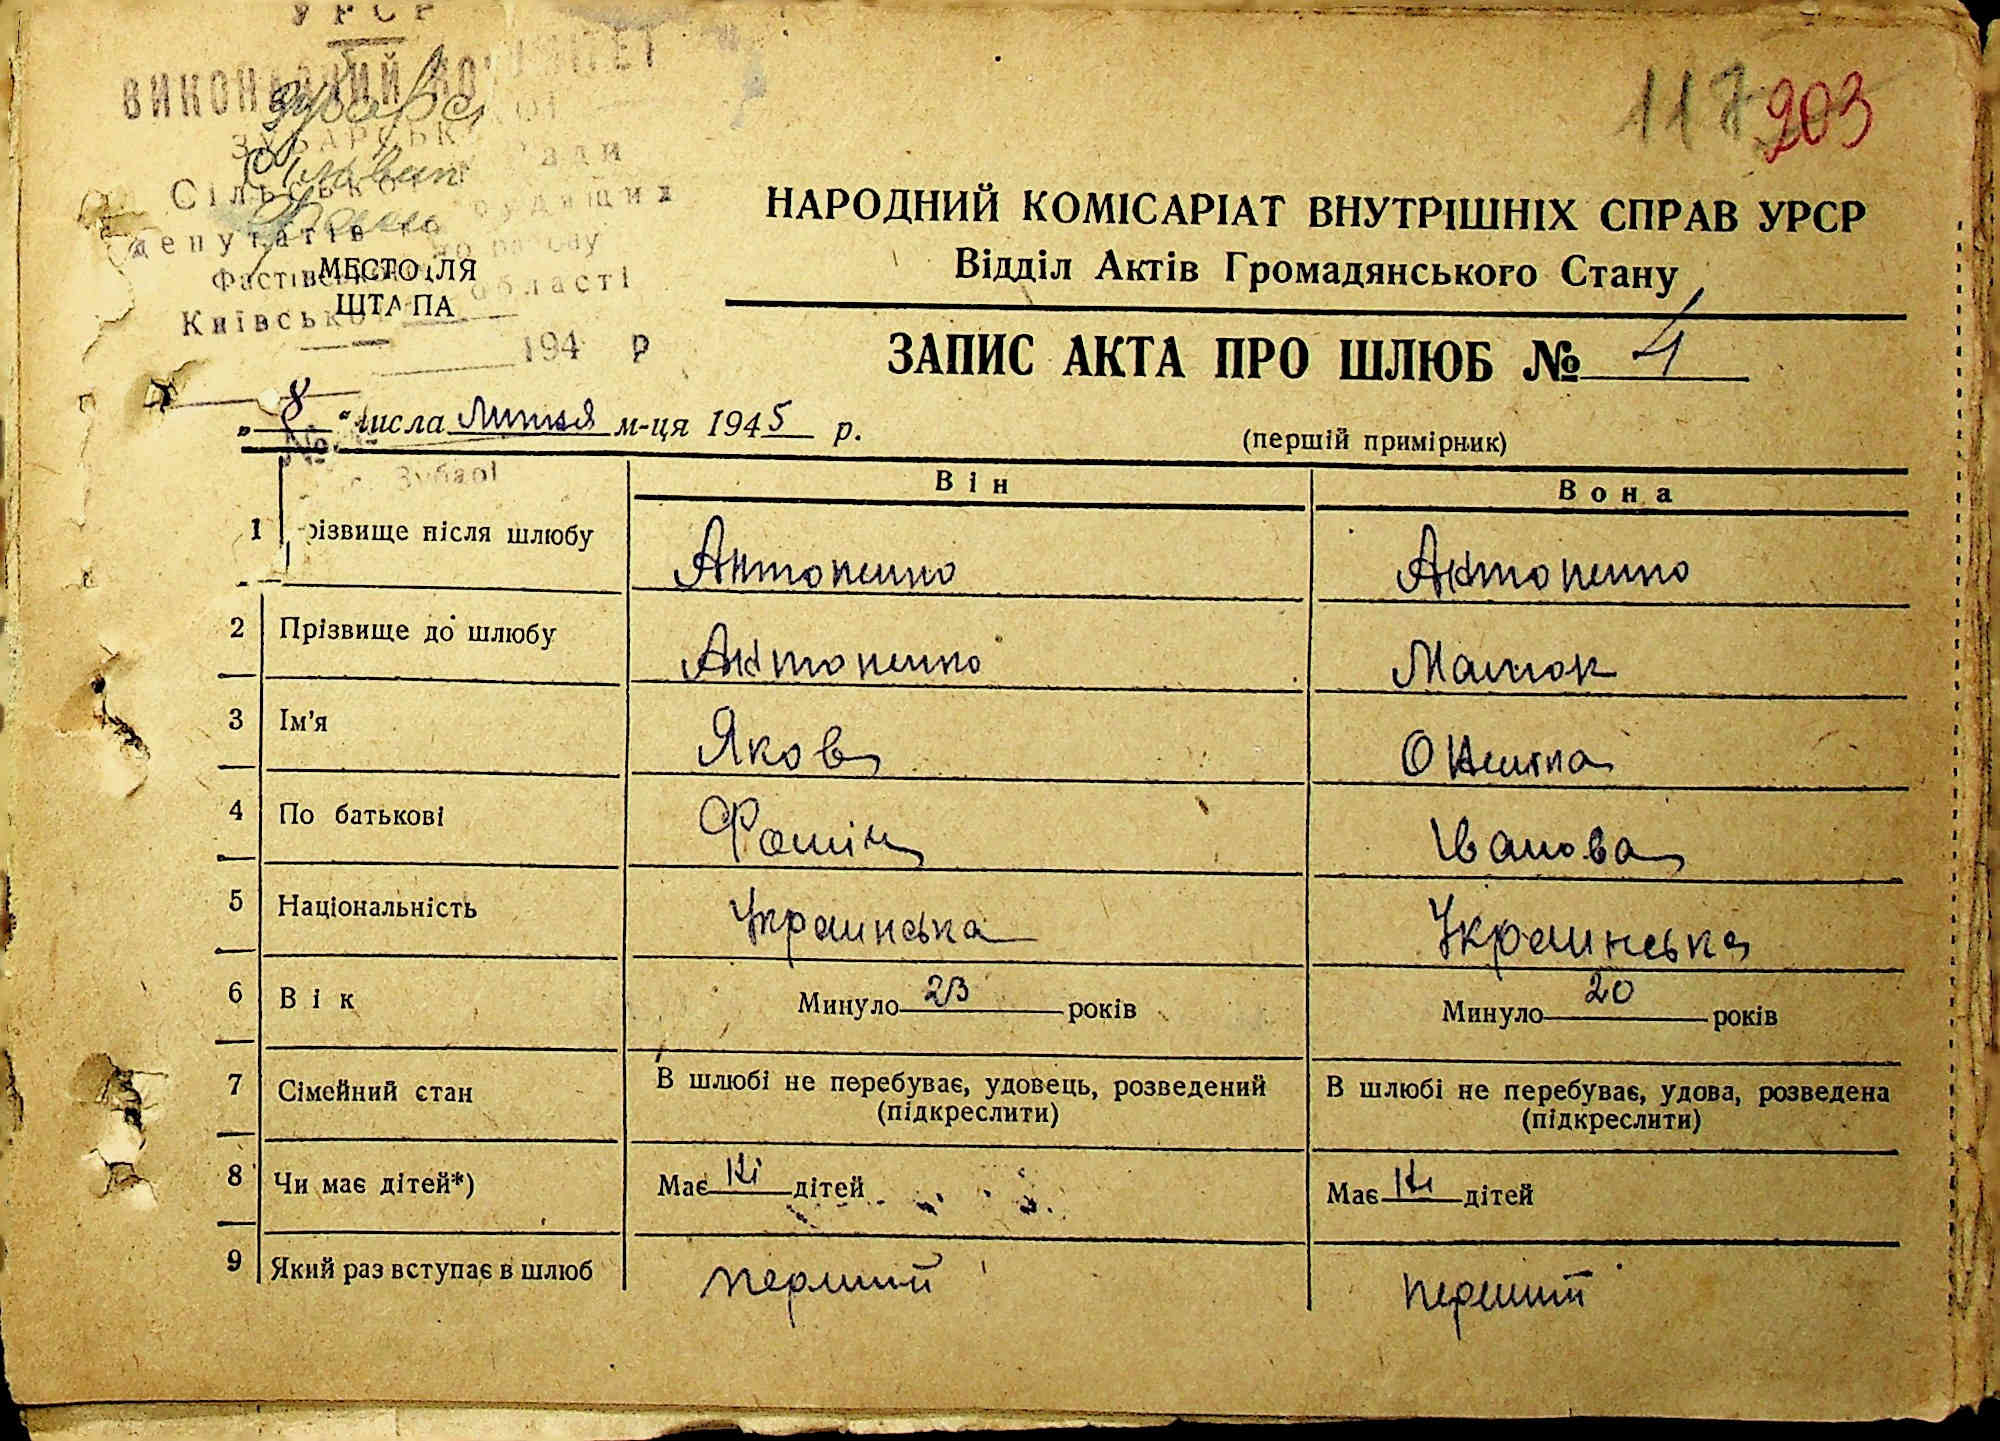 УРСР
ВИКОНАВЧИЙ КОМІТЕТ
ЗУБАРСЬКОЇ
Сільської Ради
депутатів трудящих
Фастівського району
Київської області
194 р
МЕСТО ДЛЯ
ШТАМПА
117 203
НАРОДНИЙ КОМІСАРІАТ ВНУТРІШНІХ СПРАВ УРСР
Відділ Актів Громадянського Стану
ЗАПИС АКТА ПРО ШЛЮБ № 4
„ 8 “ числа Липня м-ця 1945 р.
(першій примірник)
с. Зубарі
Він Вона
1 Прізвище після шлюбу Антоненко Антоненко
2 Прізвище до шлюбу Антоненко
3 Ім'я Яков
4 По батькові Фомін Іванова
5 Національність Украинська Украинська
6 Вік Минуло 23 років Минуло 20 років
7 Сімейний стан В шлюбі не перебуває, удовець, розведений (підкреслити) В шлюбі не перебуває, удова, розведена (підкреслити)
8 Чи має дітей*) Має Ні дітей Має Ні дітей
9 Який раз вступає в шлюб перший перший